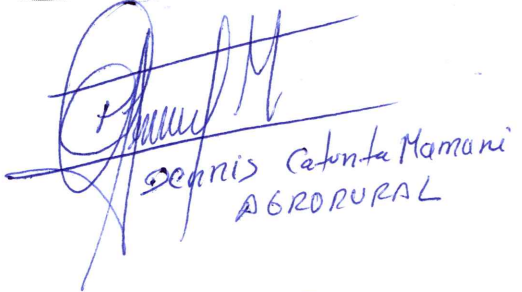 Dennis Catunta Mamani
AGRORURAL